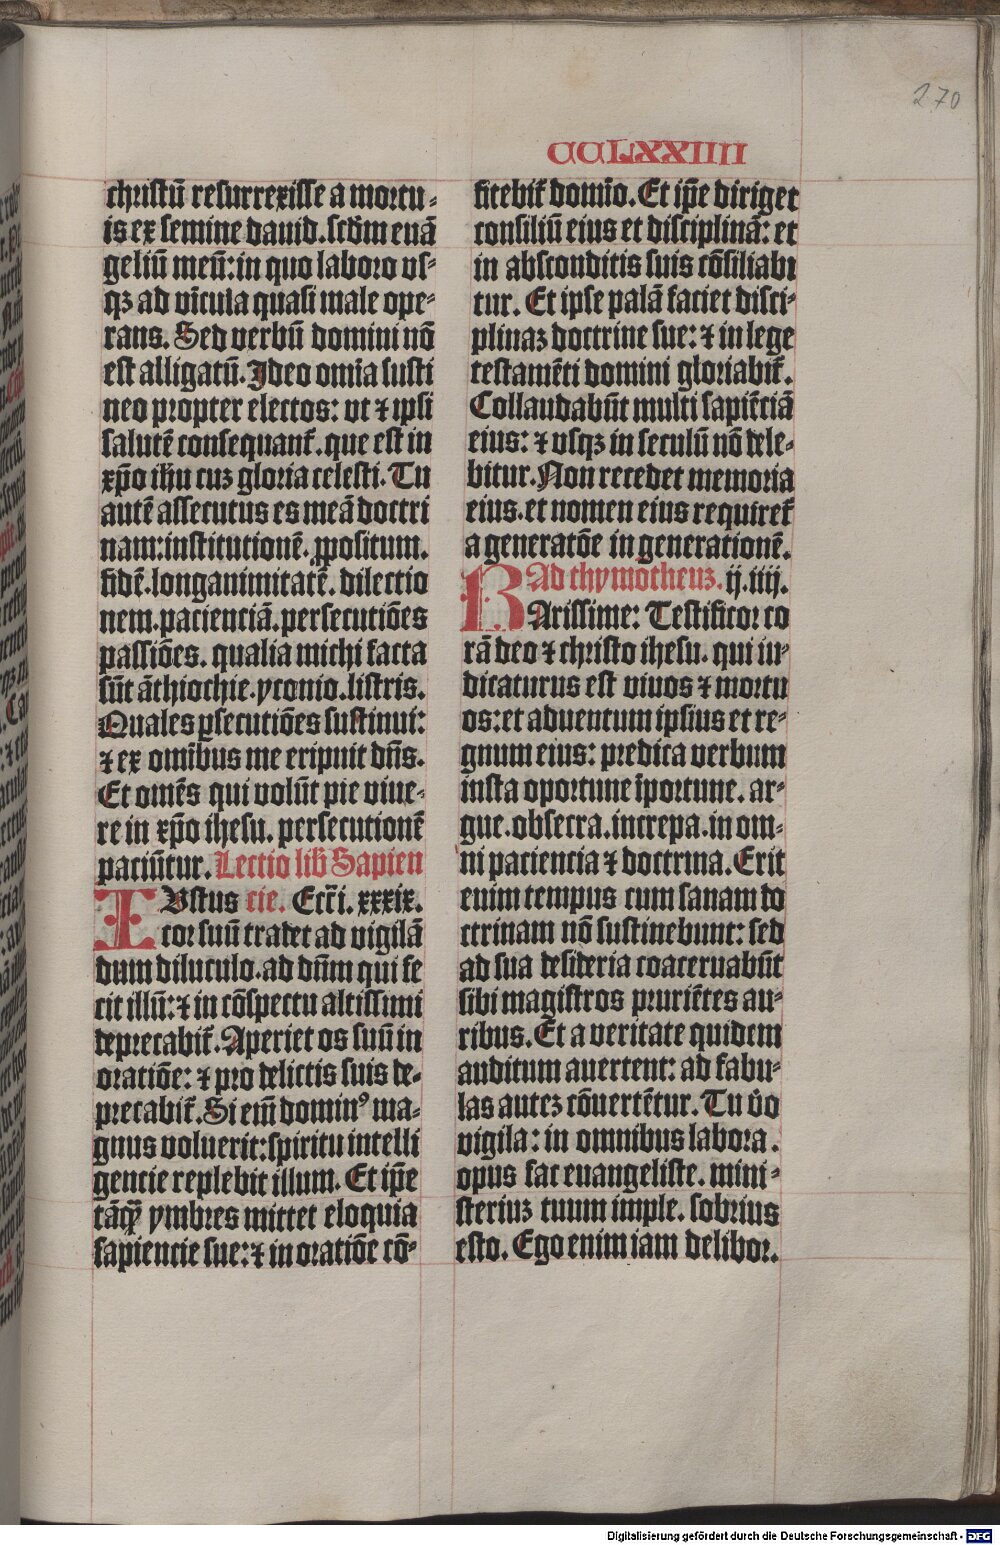 270
CCLXXIIII
christū resurrexisse a mortu-
is ex semine dauid. scdm euā
geliū meū: in quo laboro vs-
qz ad vīcula quasi male ope-
rans. Sed verbū domini nō
est alligatū. Ideo omīa susti
neo propter electos: vt ⁊ ipsi
salutē consequant̄. que est in
xp̄o ih̄u cuz gloria celesti. Tu
autē assecutus es meā doctri
nam: institutionē. ꝓpositum.
fidē. longanimitatē. dilectio
nem. pacienciā. persecutiōes
passiōes. qualia michi facta
sūt āthiochie. yconio. listris.
Quales ꝑsecutiōes sustinui:
⁊ ex omībus me eripuit dn̄s.
Et omēs qui volūt pie viue-
re in xp̄o ihesu. persecutionē
paciūtur. Lectio lib̄ Sapien
IVstus cie. Ecc̄i. xxxix.
cor suū tradet ad vigilā
dum diluculo. ad dn̄m qui fe
cit illū: ⁊ in cōspectu altissimi
deprecabit̄. Aperiet os suū in
oratiōe: ⁊ pro delictis suis de-
precabit̄. Si em̄ dominꝰ ma-
gnus voluerit: spiritu intelli
gencie replebit illum. Et ip̄e
tāqꝫ ymbres mittet eloquia
sapiencie sue: ⁊ in oratiōe cō-
fitebit̄ domīo. Et ip̄e diriget
consiliū eius et disciplinā: et
in absconditis suis cōsiliabi
tur. Et ipse palā faciet disci-
plinaz doctrine sue: ⁊ in lege
testamēti domini gloriabit̄.
Collaudabūt multi sapiēciā
eius: ⁊ vsqz in seculū nō dele-
bitur. Non recedet memoria
eius. et nomen eius requiret̄
a generatōe in generationē.
Ad thymotheuz. ij. iiij.
KArissime: Testificor co
rā deo ⁊ christo ihesu. qui iu-
dicaturus est viuos ⁊ mortu
os: et aduentum ipsius et re-
gnum eius: predica verbum
insta oportune īportune. ar-
gue. obsecra. increpa. in om-
ni paciencia ⁊ doctrina. Erit
enim tempus cum sanam do
ctrinam nō sustinebunt: sed
ad sua desideria coaceruabūt
sibi magistros pruriētes au-
ribus. Et a veritate quidem
auditum auertent: ad fabu-
las autez cōuertētur. Tu v̄o
vigila: in omnibus labora.
opus fac euangeliste. mini-
steriuz tuum imple. sobrius
esto. Ego enim iam delibor.
Digitalisierung gefördert durch die Deutsche Forschungsgemeinschaft - DFG